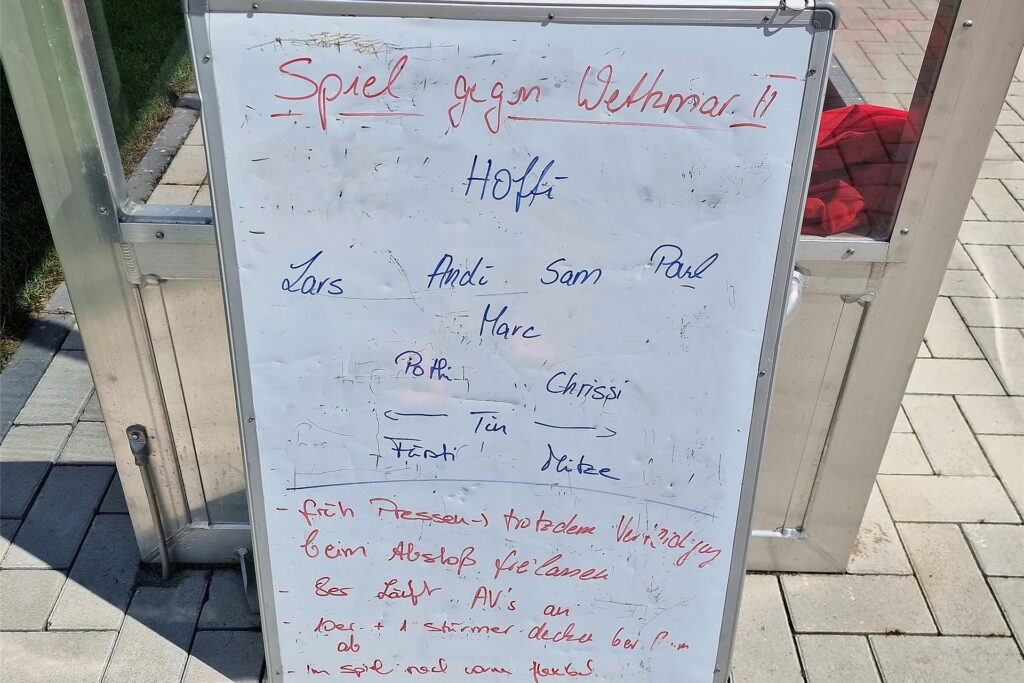 Spiel gegen Wettmar II
Hoffi
Lars Andi Sam Paul
Marc
Pothi Chrissi
← Tim →
Fürsti Mitze
- früh Pressen → trotzdem Verteidigung
beim Abstoß freilassen
- 8er Läuft AV's an
- 10er + 1 stürmer decken
ab
- im spiel nach vorne flexibel